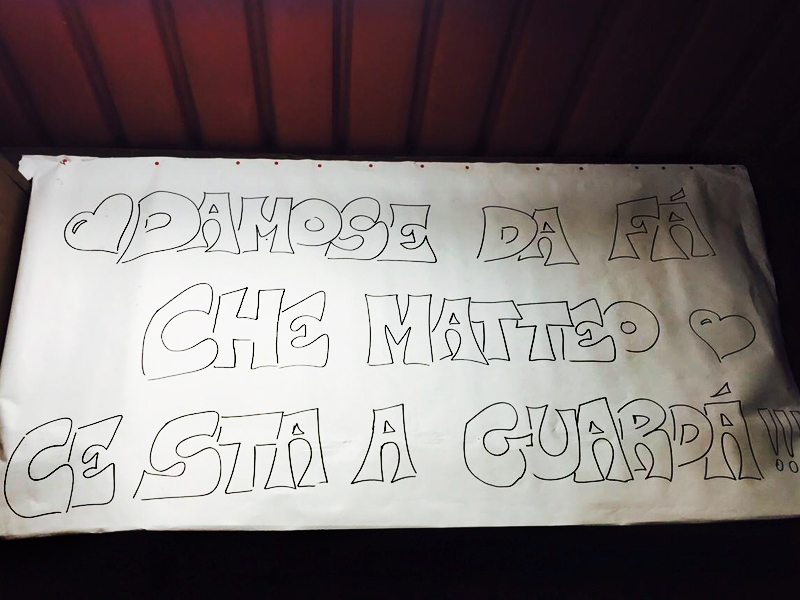 DAMOSE DA FÁ
CHE MATTEO
CE STA A GUARDÁ!!!